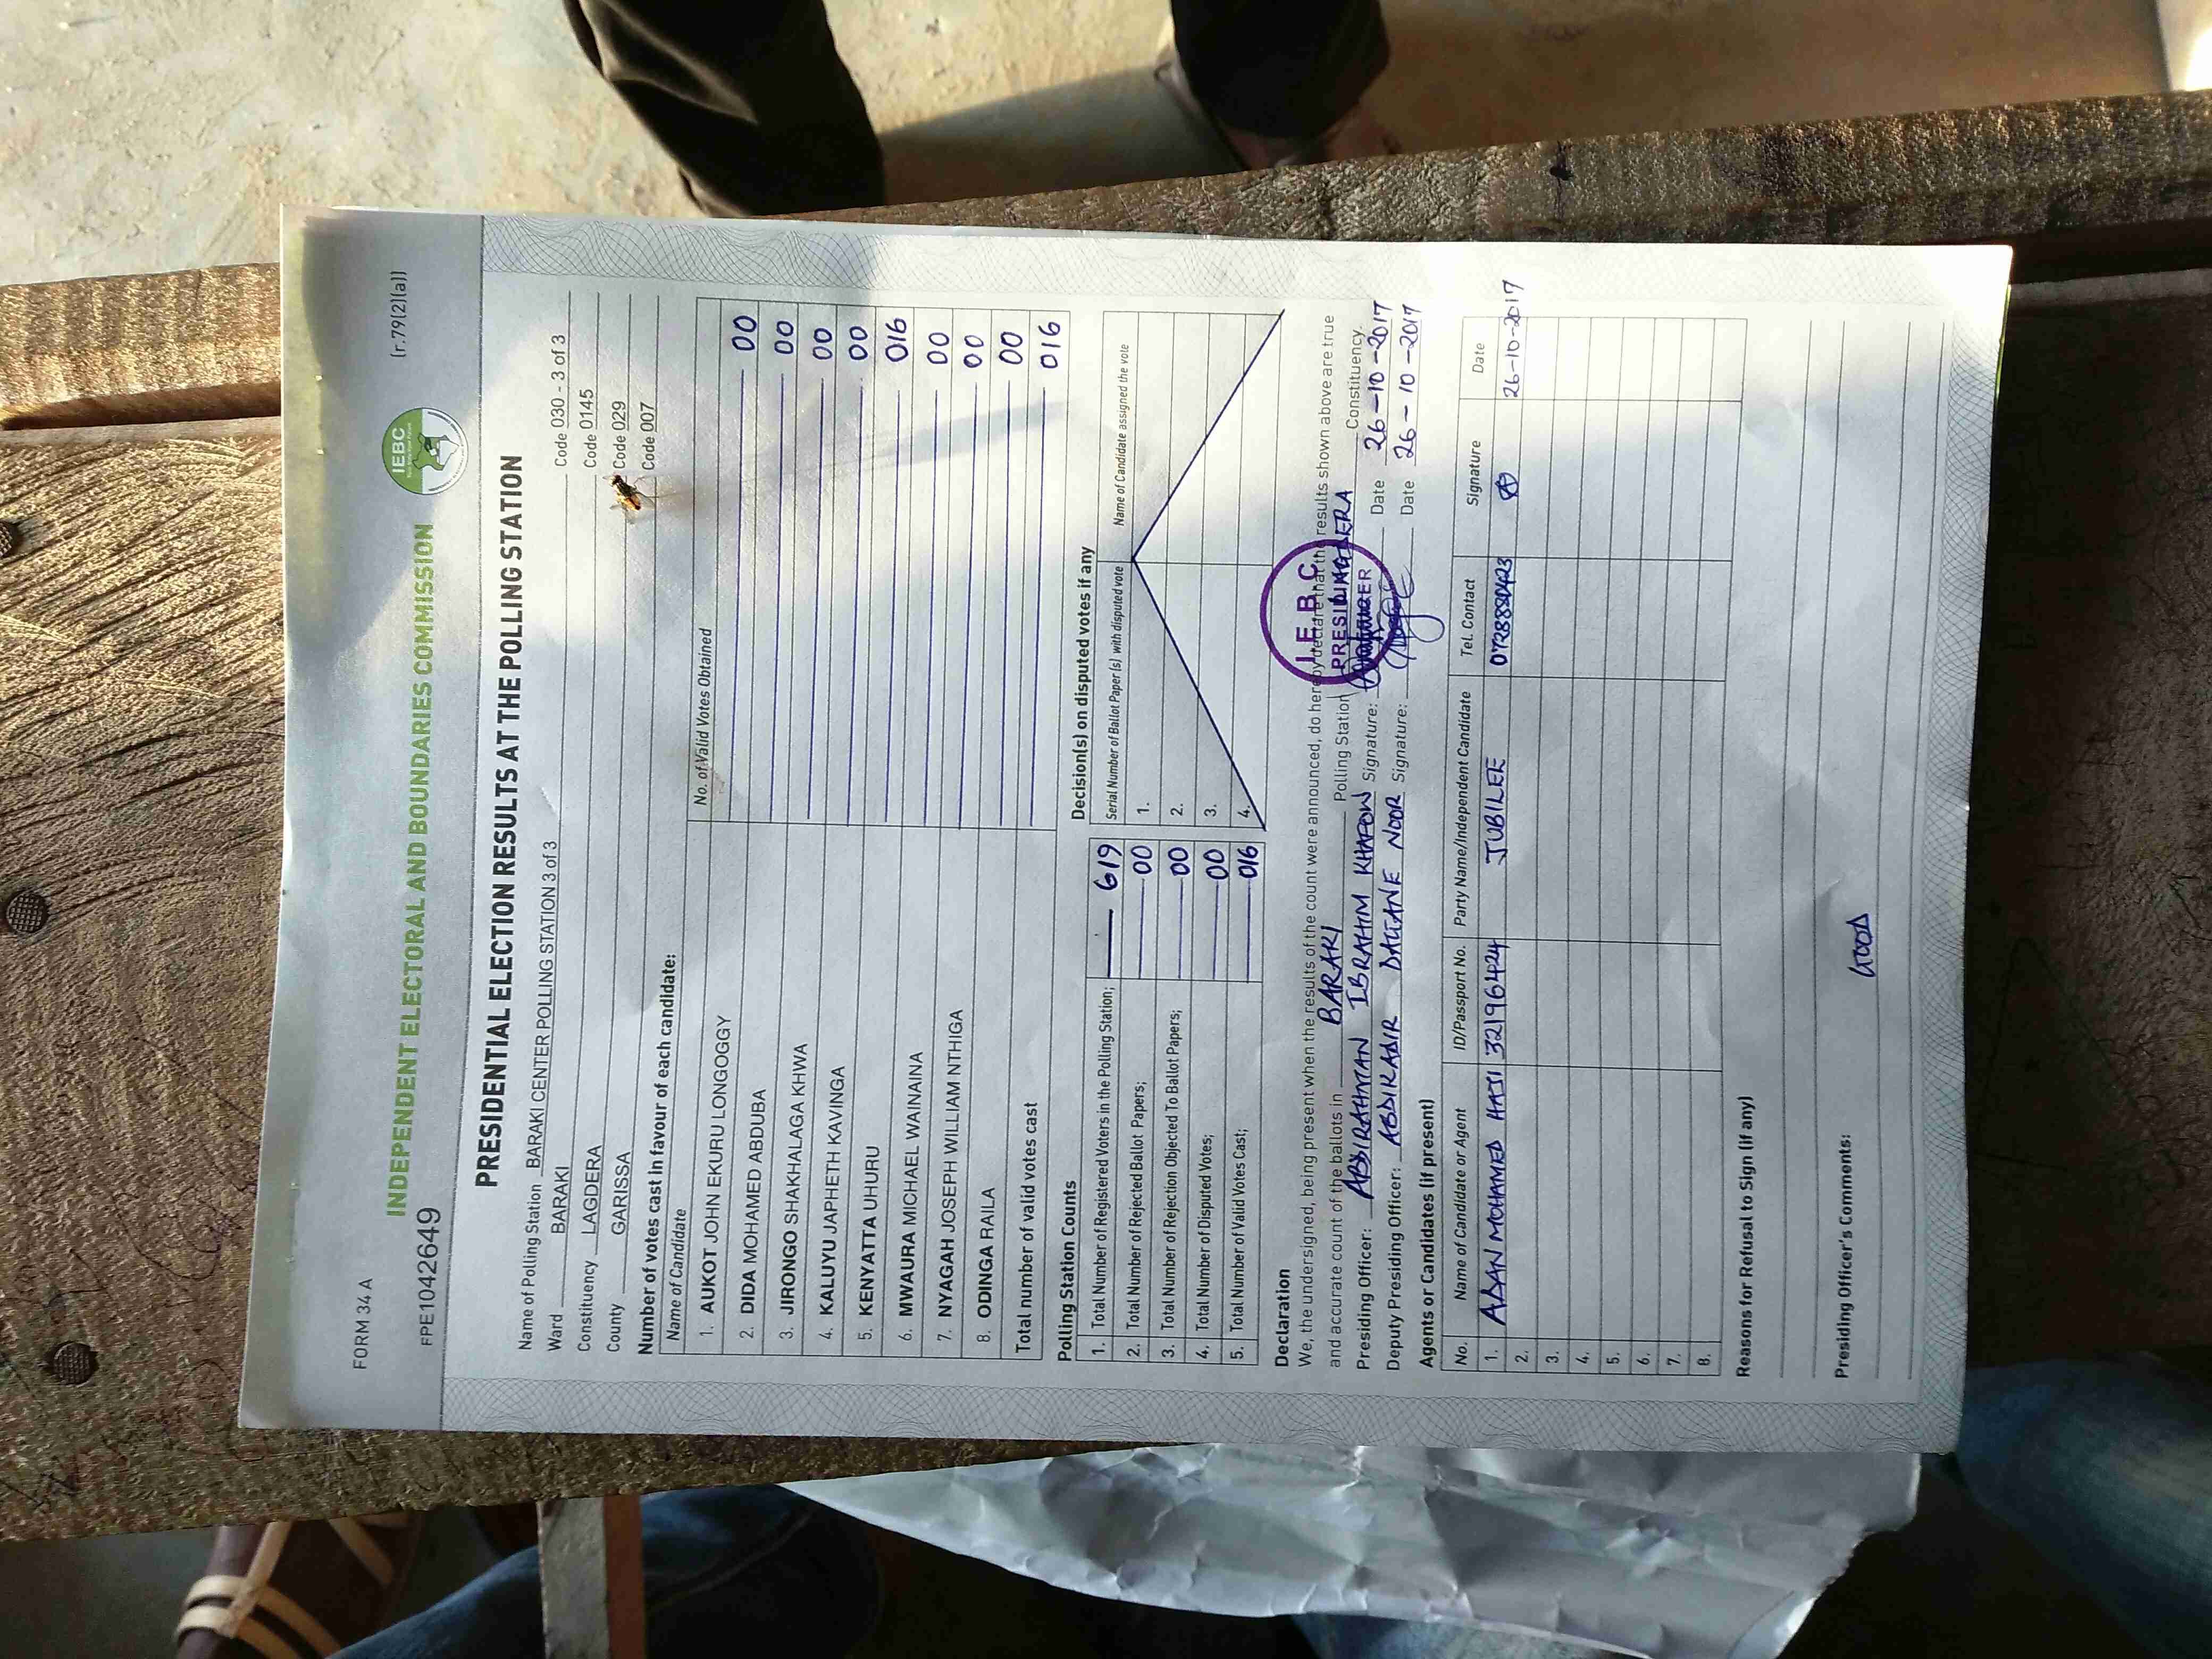 FORM 34 A (r.79(2)(a))
INDEPENDENT ELECTORAL AND BOUNDARIES COMMISSION IEBC
FPE1042649
PRESIDENTIAL ELECTION RESULTS AT THE POLLING STATION
Name of Polling Station BARAKI CENTER POLLING STATION 3 of 3 Code 030 - 3 of 3
Ward BARAKI Code 0145
Constituency LAGDERA Code 029
County GARISSA Code 007
Number of votes cast in favour of each candidate:
Name of Candidate No. of Valid Votes Obtained
1. AUKOT JOHN EKURU LONGOGGY 00
2. DIDA MOHAMED ABDUBA 00
3. JIRONGO SHAKHALAGA KHWA 00
4. KALUYU JAPHETH KAVINGA 00
5. KENYATTA UHURU 016
6. MWAURA MICHAEL WAINAINA 00
7. NYAGAH JOSEPH WILLIAM NTHIGA 00
8. ODINGA RAILA 00
Total number of valid votes cast 016
Polling Station Counts
1. Total Number of Registered Voters in the Polling Station; 619
2. Total Number of Rejected Ballot Papers; 00
3. Total Number of Rejection Objected To Ballot Papers; 00
4. Total Number of Disputed Votes; 00
5. Total Number of Valid Votes Cast; 016
Decision(s) on disputed votes if any
Serial Number of Ballot Paper (s) with disputed vote Name of Candidate assigned the vote
1.
2.
3.
4.
Declaration
We, the undersigned, being present when the results of the count were announced, do hereby declare that the results shown above are true
and accurate count of the ballots in BARAKI Polling Station LAGDERA Constituency.
Presiding Officer: ABDIRAHMAN IBRAHIM KHAFOW Signature: Date 26-10-2017
Deputy Presiding Officer: ABDIKADIR DAGANE NOOR Signature: Date 26-10-2017
I.E.B.C
PRESIDING
Agents or Candidates (if present)
No. Name of Candidate or Agent ID/Passport No. Party Name/Independent Candidate Tel. Contact Signature Date
1. ADAN MOHAMED HAJI 32196424 JUBILEE 26-10-2017
2.
3.
4.
5.
6.
7.
8.
Reasons for Refusal to Sign (if any)
Presiding Officer's Comments:
GOOD